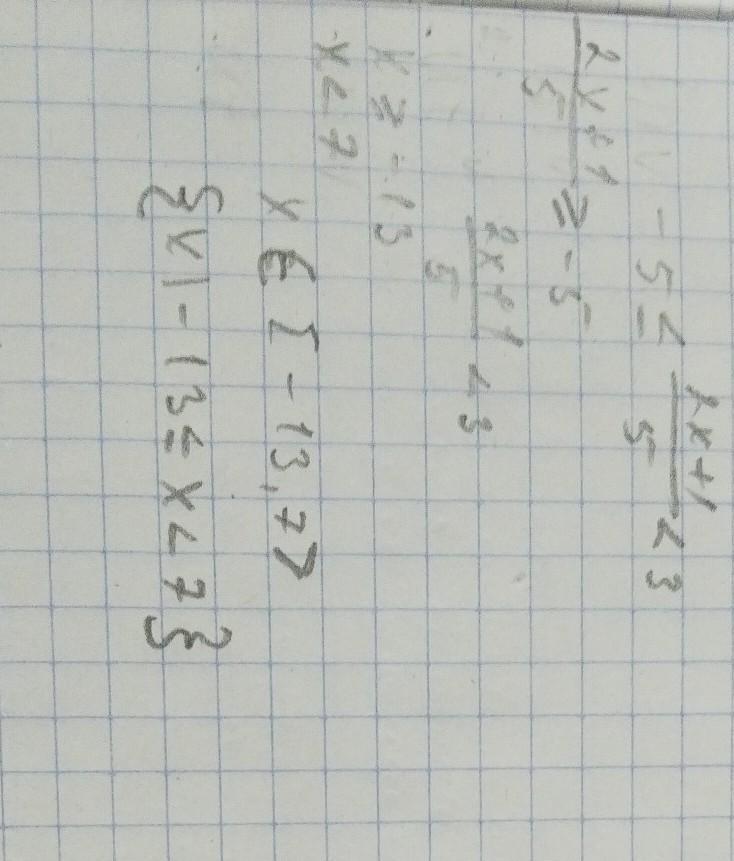 -5 ≤ 2x+1/5 < 3
2x+1/5 ≥ -5
2x+1/5 < 3
x ≥ -13
x < 7
x ∈ [-13,7>
{x|-13 ≤ x < 7}